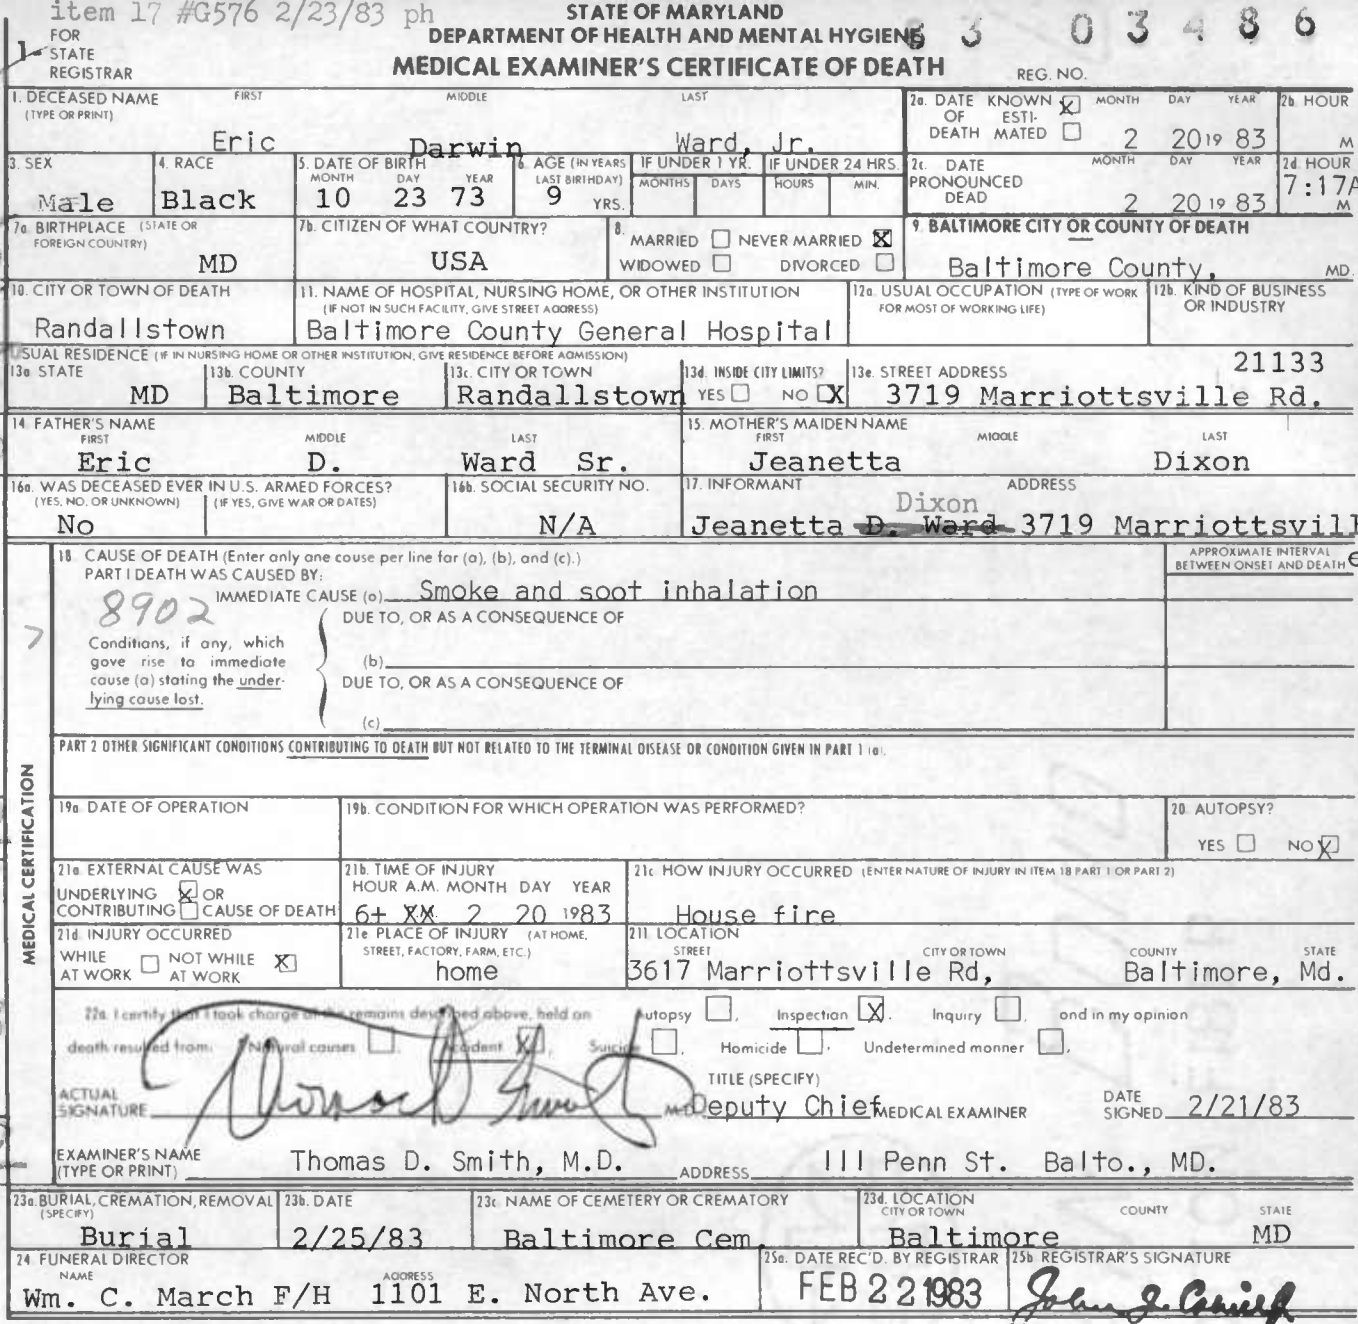 item 17 #G576 2/23/83 ph
STATE OF MARYLAND
DEPARTMENT OF HEALTH AND MENTAL HYGIENE
83 03486
1- FOR STATE REGISTRAR
MEDICAL EXAMINER'S CERTIFICATE OF DEATH
REG. NO.
1. DECEASED NAME (TYPE OR PRINT) FIRST MIDDLE LAST
Eric Darwin Ward, Jr.
2a. DATE OF DEATH KNOWN X ESTI-MATED MONTH DAY YEAR
2 20 19 83
2b. HOUR
M
3. SEX
Male
4. RACE
Black
5. DATE OF BIRTH MONTH DAY YEAR
10 23 73
6. AGE (IN YEARS LAST BIRTHDAY)
9 YRS.
IF UNDER 1 YR. MONTHS DAYS
IF UNDER 24 HRS. HOURS MIN.
2c. DATE PRONOUNCED DEAD MONTH DAY YEAR
2 20 19 83
2d. HOUR
7:17A M
7a. BIRTHPLACE (STATE OR FOREIGN COUNTRY)
MD
7b. CITIZEN OF WHAT COUNTRY?
USA
8. MARRIED NEVER MARRIED X
WIDOWED DIVORCED
9. BALTIMORE CITY OR COUNTY OF DEATH
Baltimore County, MD.
10. CITY OR TOWN OF DEATH
Randallstown
11. NAME OF HOSPITAL, NURSING HOME, OR OTHER INSTITUTION
(IF NOT IN SUCH FACILITY, GIVE STREET ADDRESS)
Baltimore County General Hospital
12a. USUAL OCCUPATION (TYPE OF WORK FOR MOST OF WORKING LIFE)
12b. KIND OF BUSINESS OR INDUSTRY
USUAL RESIDENCE (IF IN NURSING HOME OR OTHER INSTITUTION, GIVE RESIDENCE BEFORE ADMISSION)
13a. STATE
MD
13b. COUNTY
Baltimore
13c. CITY OR TOWN
Randallstown
13d. INSIDE CITY LIMITS?
YES NO X
13e. STREET ADDRESS 21133
3719 Marriottsville Rd.
14. FATHER'S NAME FIRST MIDDLE LAST
Eric D. Ward Sr.
15. MOTHER'S MAIDEN NAME FIRST MIDDLE LAST
Jeanetta Dixon
16a. WAS DECEASED EVER IN U.S. ARMED FORCES?
(YES, NO, OR UNKNOWN) (IF YES, GIVE WAR OR DATES)
No
16b. SOCIAL SECURITY NO.
N/A
17. INFORMANT ADDRESS
Dixon
Jeanetta D. Ward 3719 Marriottsvill
e
MEDICAL CERTIFICATION
18. CAUSE OF DEATH (Enter only one cause per line for (a), (b), and (c).)
APPROXIMATE INTERVAL BETWEEN ONSET AND DEATH
PART I DEATH WAS CAUSED BY:
IMMEDIATE CAUSE (a) Smoke and soot inhalation
8902
DUE TO, OR AS A CONSEQUENCE OF
Conditions, if any, which
gave rise to immediate
cause (a) stating the under-
lying cause last.
(b)
DUE TO, OR AS A CONSEQUENCE OF
(c)
PART 2 OTHER SIGNIFICANT CONDITIONS CONTRIBUTING TO DEATH BUT NOT RELATED TO THE TERMINAL DISEASE OR CONDITION GIVEN IN PART 1 (a).
19a. DATE OF OPERATION
19b. CONDITION FOR WHICH OPERATION WAS PERFORMED?
20. AUTOPSY?
YES NO X
21a. EXTERNAL CAUSE WAS
UNDERLYING X OR
CONTRIBUTING CAUSE OF DEATH
21b. TIME OF INJURY
HOUR A.M. MONTH DAY YEAR
6+ XX. 2 20 1983
21c. HOW INJURY OCCURRED (ENTER NATURE OF INJURY IN ITEM 18 PART 1 OR PART 2)
House fire
21d. INJURY OCCURRED
WHILE AT WORK NOT WHILE AT WORK X
21e. PLACE OF INJURY (AT HOME, STREET, FACTORY, FARM, ETC.)
home
21f. LOCATION STREET CITY OR TOWN COUNTY STATE
3617 Marriottsville Rd, Baltimore, Md.
22a. I certify that I took charge of the remains described above, held an Autopsy , Inspection X, Inquiry , and in my opinion
death resulted from: Natural causes , Accident X, Suicide , Homicide , Undetermined manner .
ACTUAL SIGNATURE Thomas D. Smith M.D.
TITLE (SPECIFY)
Deputy Chief MEDICAL EXAMINER
DATE SIGNED 2/21/83
EXAMINER'S NAME (TYPE OR PRINT) Thomas D. Smith, M.D.
ADDRESS 111 Penn St. Balto., MD.
23a. BURIAL, CREMATION, REMOVAL (SPECIFY)
Burial
23b. DATE
2/25/83
23c. NAME OF CEMETERY OR CREMATORY
Baltimore Cem
23d. LOCATION CITY OR TOWN COUNTY STATE
Baltimore MD
24. FUNERAL DIRECTOR
NAME ADDRESS
Wm. C. March F/H 1101 E. North Ave.
25a. DATE REC'D. BY REGISTRAR
FEB 22 1983
25b. REGISTRAR'S SIGNATURE
John J.